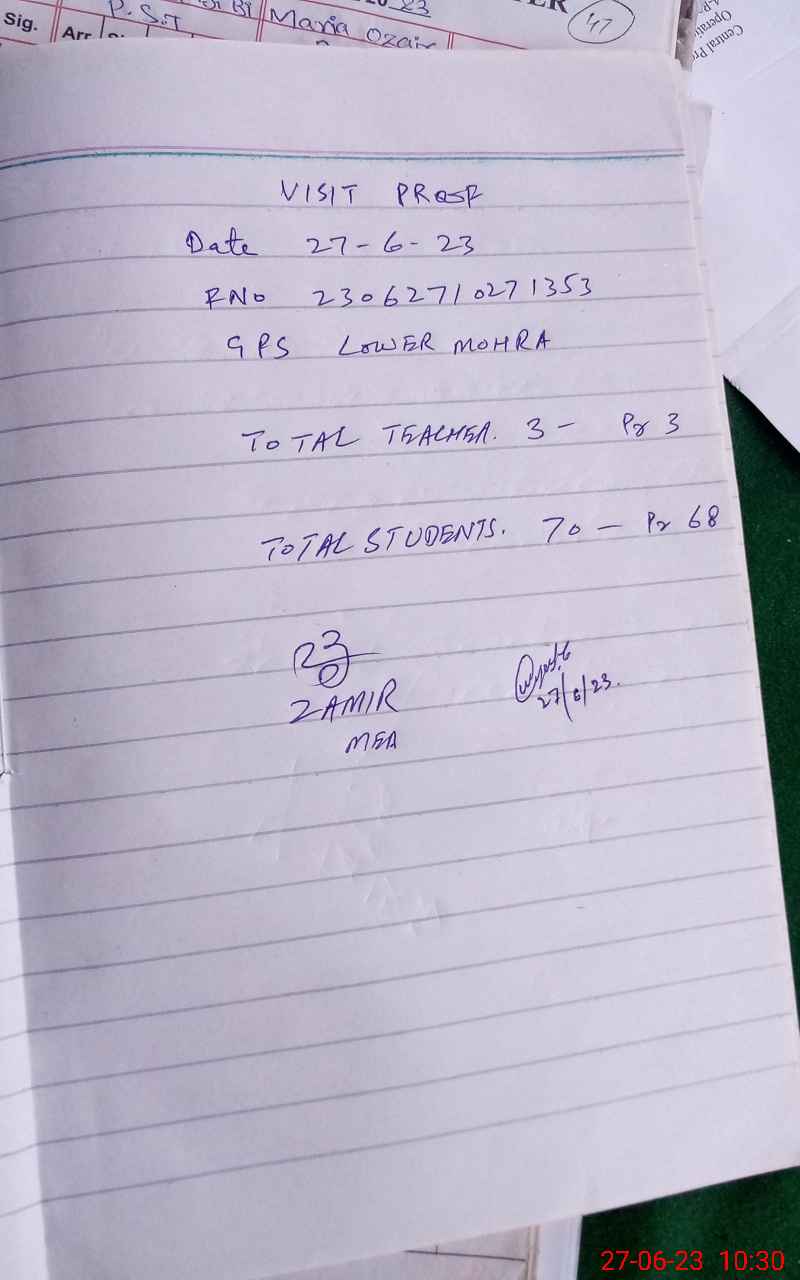 Sig.
P.S.T
Maria Ozair
23
47
Arr
Central Pr
Operati
VISIT PROOF
Date 27-6-23
RNo 23062710271353
GPS LOWER MOHRA
TOTAL TEACHER. 3 - Pr 3
TOTAL STUDENTS. 70 - Pr 68
ZAMIR
MEA
27/6/23.
27-06-23 10:30